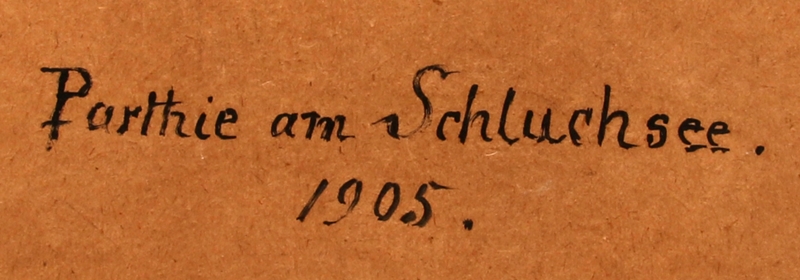 Parthie am Schluchsee.
1905.